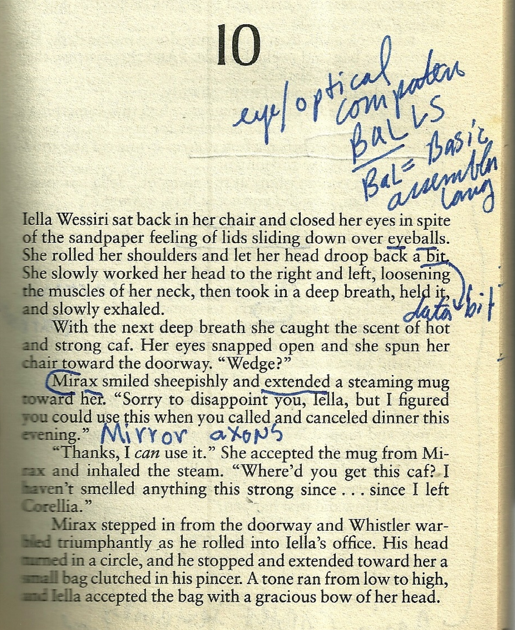 10
eye/optical
computers
BaLLS
BaL = Basic
assembler
lang
Iella Wessiri sat back in her chair and closed her eyes in spite
of the sandpaper feeling of lids sliding down over eyeballs.
She rolled her shoulders and let her head droop back a bit.
She slowly worked her head to the right and left, loosening
the muscles of her neck, then took in a deep breath, held it,
and slowly exhaled.
data bit
With the next deep breath she caught the scent of hot
and strong caf. Her eyes snapped open and she spun her
chair toward the doorway. “Wedge?”
Mirax smiled sheepishly and extended a steaming mug
toward her. “Sorry to disappoint you, Iella, but I figured
you could use this when you called and canceled dinner this
evening.”
Mirror axons
“Thanks, I can use it.” She accepted the mug from Mi-
rax and inhaled the steam. “Where’d you get this caf? I
haven’t smelled anything this strong since . . . since I left
Corellia.”
Mirax stepped in from the doorway and Whistler war-
bled triumphantly as he rolled into Iella’s office. His head
turned in a circle, and he stopped and extended toward her a
small bag clutched in his pincer. A tone ran from low to high,
and Iella accepted the bag with a gracious bow of her head.